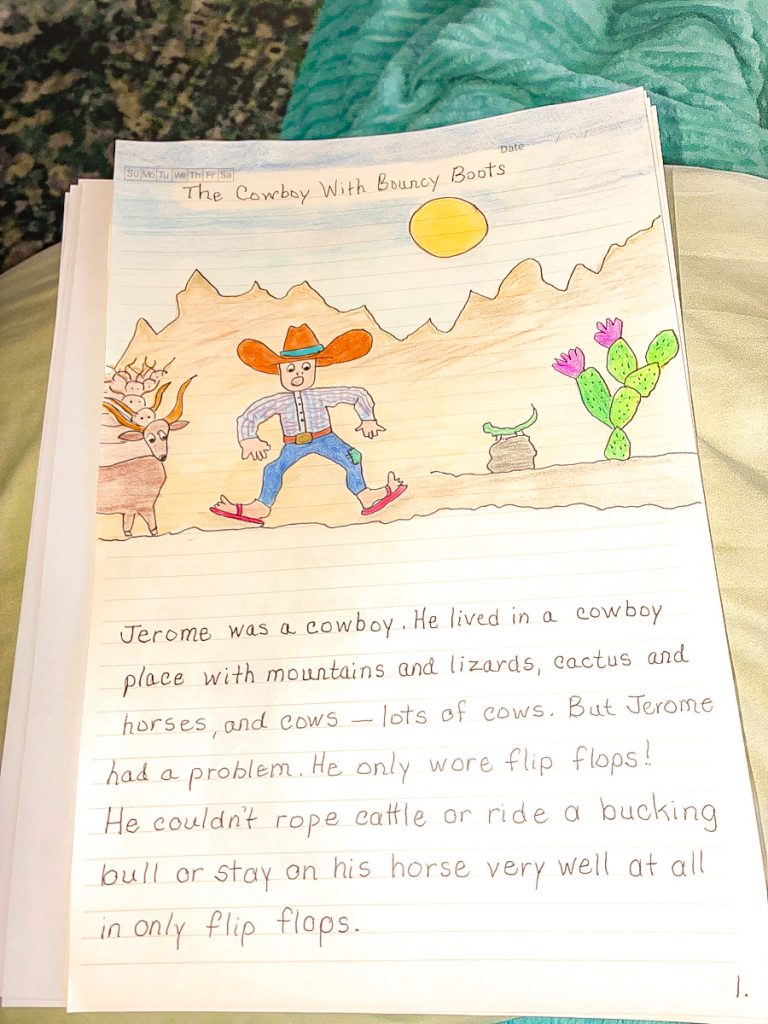 Date / /
Su Mo Tu We Th Fr Sa
The Cowboy With Bouncy Boots
Jerome was a cowboy. He lived in a cowboy
place with mountains and lizards, cactus and
horses, and cows — lots of cows. But Jerome
had a problem. He only wore flip flops!
He couldn't rope cattle or ride a bucking
bull or stay on his horse very well at all
in only flip flops.
1.